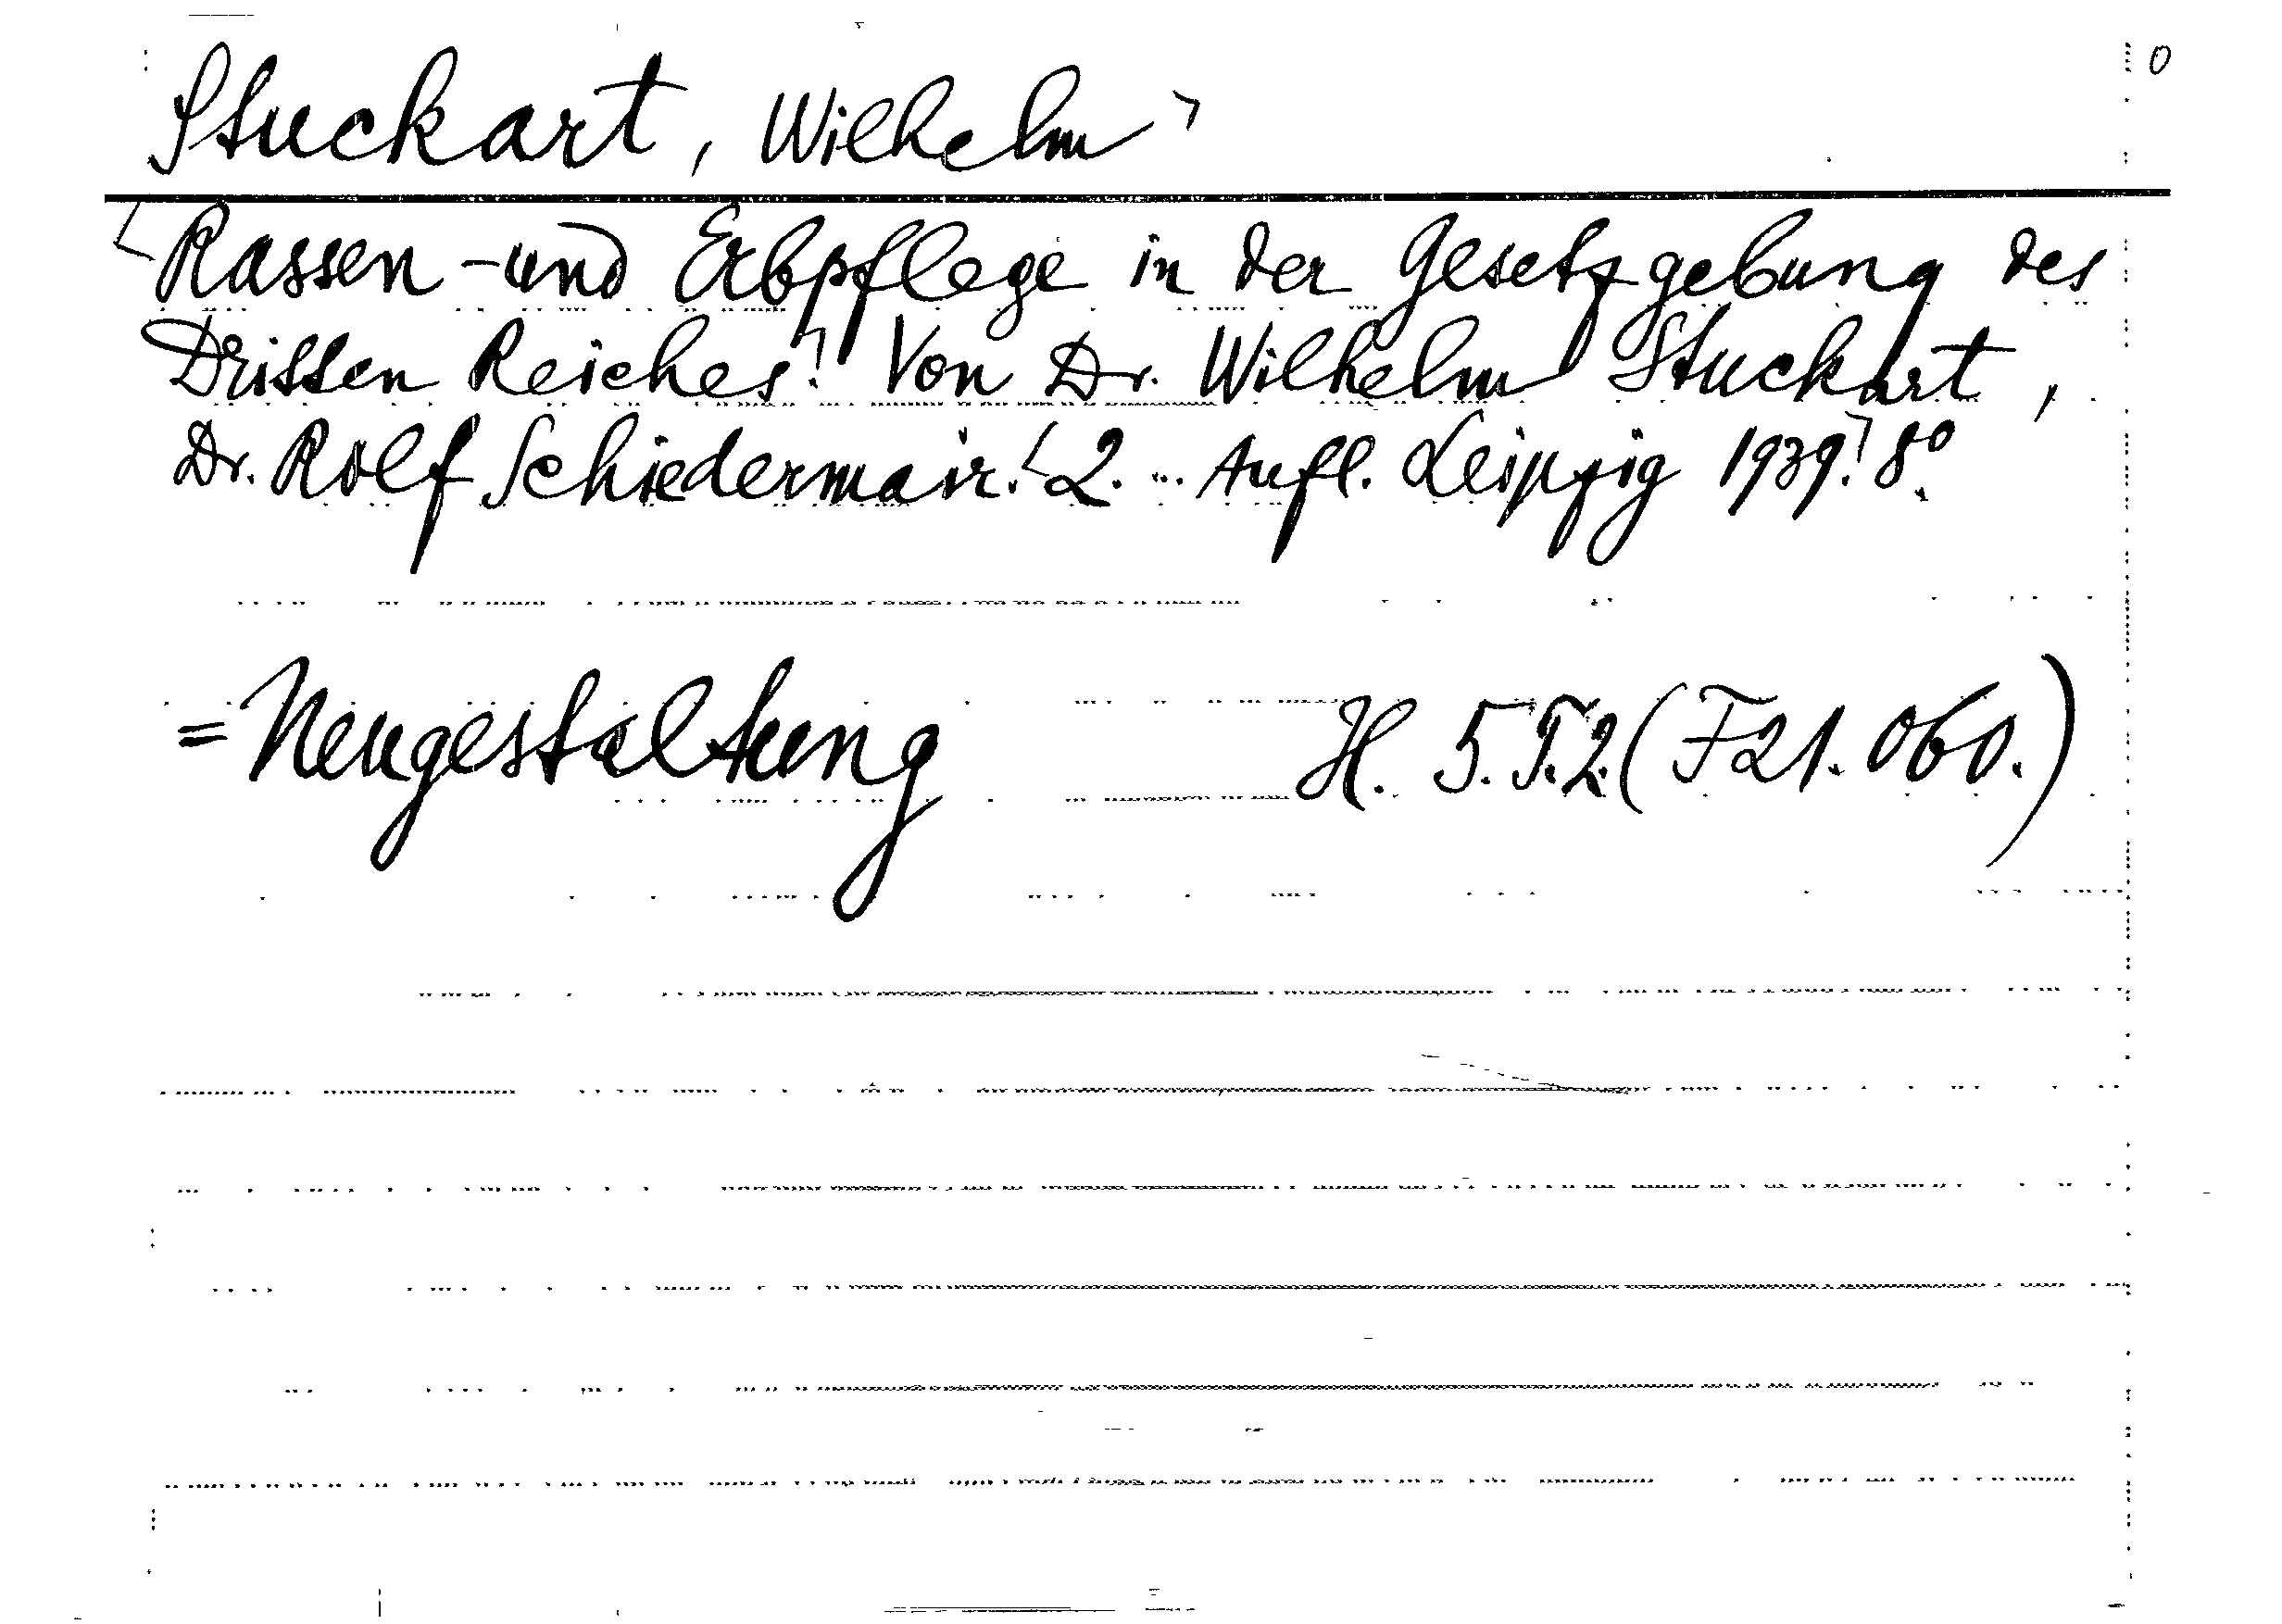 0
Stuckart, Wilhelm
Rassen-und Erbpflege in der Gesetzgebung des
Dritten Reiches. Von Dr. Wilhelm Stuckart,
Dr. Rolf Schiedermair. 2. ... Aufl. Leipzig 1939. 8°.
= Neugestaltung H. 5. T.2. (F21. 060.)